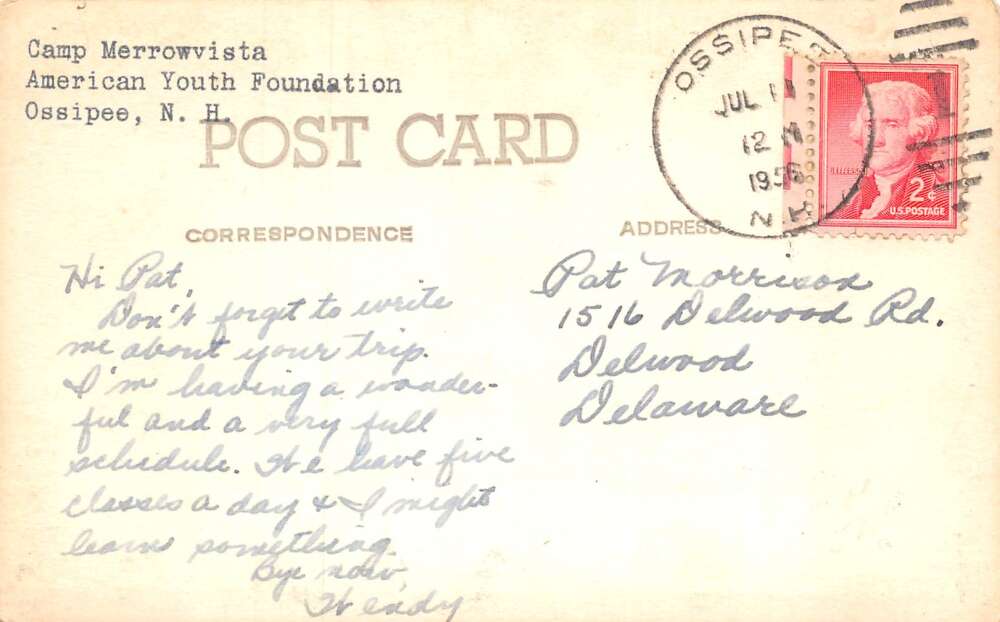 Camp Merrowvista
American Youth Foundation
Ossipee, N. H.
POST CARD
OSSIPEE
JUL 11
12 M
1956
N.H.
JEFFERSON
2¢
U.S. POSTAGE
CORRESPONDENCE
ADDRESS
Hi Pat,
Don't forget to write
me about your trip.
I'm having a wonder-
ful and a very full
schedule. We have five
classes a day & I might
learn something.
Bye now,
Wendy
Pat Morrison
1516 Delwood Rd.
Delwood
Delaware